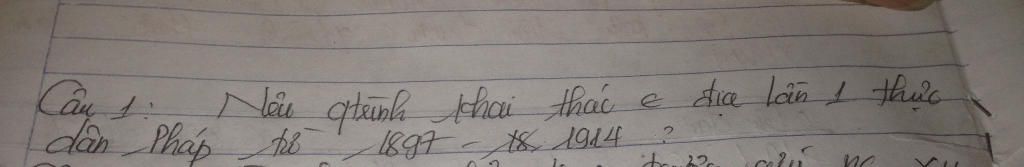 Câu 1: Nêu qtrình khai thác c địa lần 1 thực
dân Pháp từ 1897 - 1914 ?